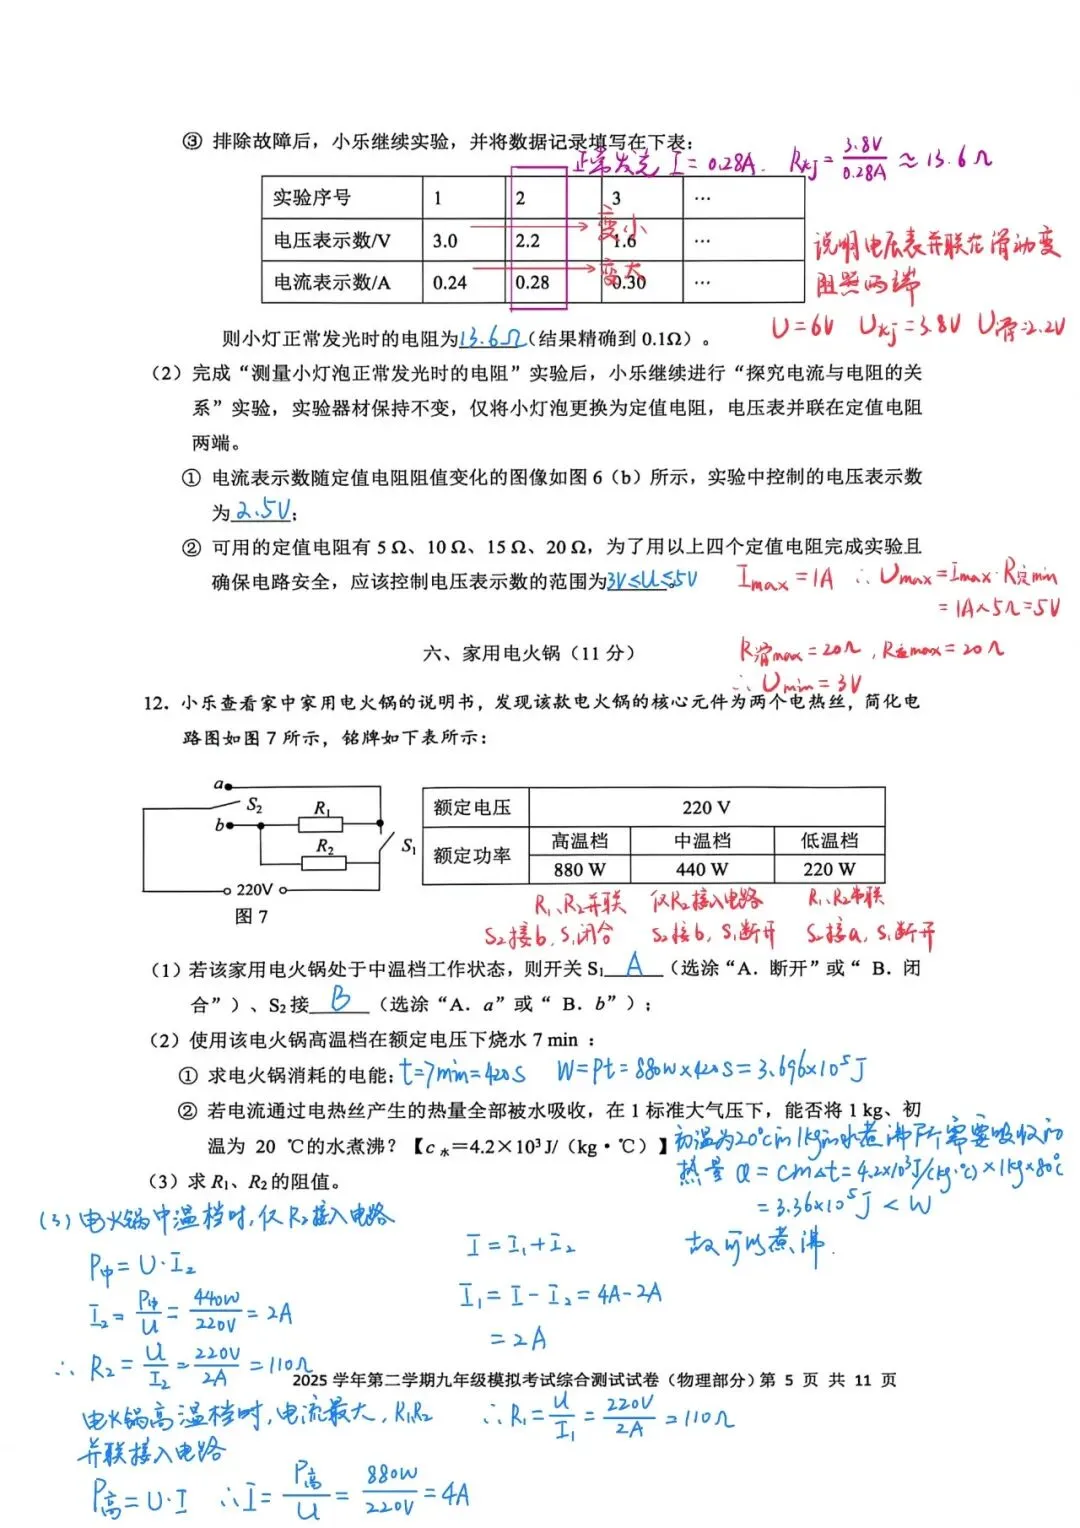 ③ 排除故障后，小乐继续实验，并将数据记录填写在下表：
正常发光 I = 0.28A. R灯 = 3.8V/0.28A ≈ 13.6Ω
实验序号 1 2 3 …
电压表示数/V 3.0 2.2 1.6 …
变小
电流表示数/A 0.24 0.28 0.30 …
变大
说明电压表并联在滑动变
阻器两端
U=6V U灯=3.8V U滑=2.2V
则小灯正常发光时的电阻为13.6Ω(结果精确到 0.1Ω)。
（2）完成“测量小灯泡正常发光时的电阻”实验后，小乐继续进行“探究电流与电阻的关
系”实验，实验器材保持不变，仅将小灯泡更换为定值电阻，电压表并联在定值电阻
两端。
① 电流表示数随定值电阻阻值变化的图像如图 6（b）所示，实验中控制的电压表示数
为2.5V;
② 可用的定值电阻有 5 Ω、10 Ω、15 Ω、20 Ω，为了用以上四个定值电阻完成实验且
确保电路安全，应该控制电压表示数的范围为3V≤U≤5V。
Imax = 1A ∴ Umax = Imax·R定min
= 1A×5Ω=5V
R滑max = 20Ω, R定max = 20Ω
∴ Umin = 3V
六、家用电火锅（11 分）
12. 小乐查看家中家用电火锅的说明书，发现该款电火锅的核心元件为两个电热丝，简化电
路图如图 7 所示，铭牌如下表所示：
a
S2
b
R1
R2
S1
220V
图 7
额定电压 220 V
额定功率 高温档 中温档 低温档
880 W 440 W 220 W
R1、R2并联 仅R2接入电路 R1、R2串联
S2接b, S1闭合 S2接b, S1断开 S2接a, S1断开
（1）若该家用电火锅处于中温档工作状态，则开关 S1 A （选涂“A．断开”或“ B．闭
合”）、S2接 B （选涂“A．a”或“ B．b”）；
（2）使用该电火锅高温档在额定电压下烧水 7 min ：
① 求电火锅消耗的电能; t=7min=420s W=Pt=880W×420s=3.696×10⁵J
② 若电流通过电热丝产生的热量全部被水吸收，在 1 标准大气压下，能否将 1 kg、初
温为 20 ℃的水煮沸？【c水＝4.2×10³ J/（kg·℃）】
初温为20℃的1kg的水煮沸所需要吸收的
热量 Q = cmΔt = 4.2×10³J/(kg·℃)×1kg×80℃
= 3.36×10⁵J < W
故可以煮沸.
（3）求 R1、R2的阻值。
(3) 电火锅中温档时, 仅R2接入电路
P中 = U·I2
I2 = P中/U = 440W/220V = 2A
∴ R2 = U/I2 = 220V/2A = 110Ω
电火锅高温档时, 电流最大, R1R2
并联接入电路
P高 = U·I ∴ I = P高/U = 880W/220V = 4A
I = I1 + I2
I1 = I − I2 = 4A−2A
= 2A
∴ R1 = U/I1 = 220V/2A = 110Ω
2025 学年第二学期九年级模拟考试综合测试试卷（物理部分）第 5 页 共 11 页